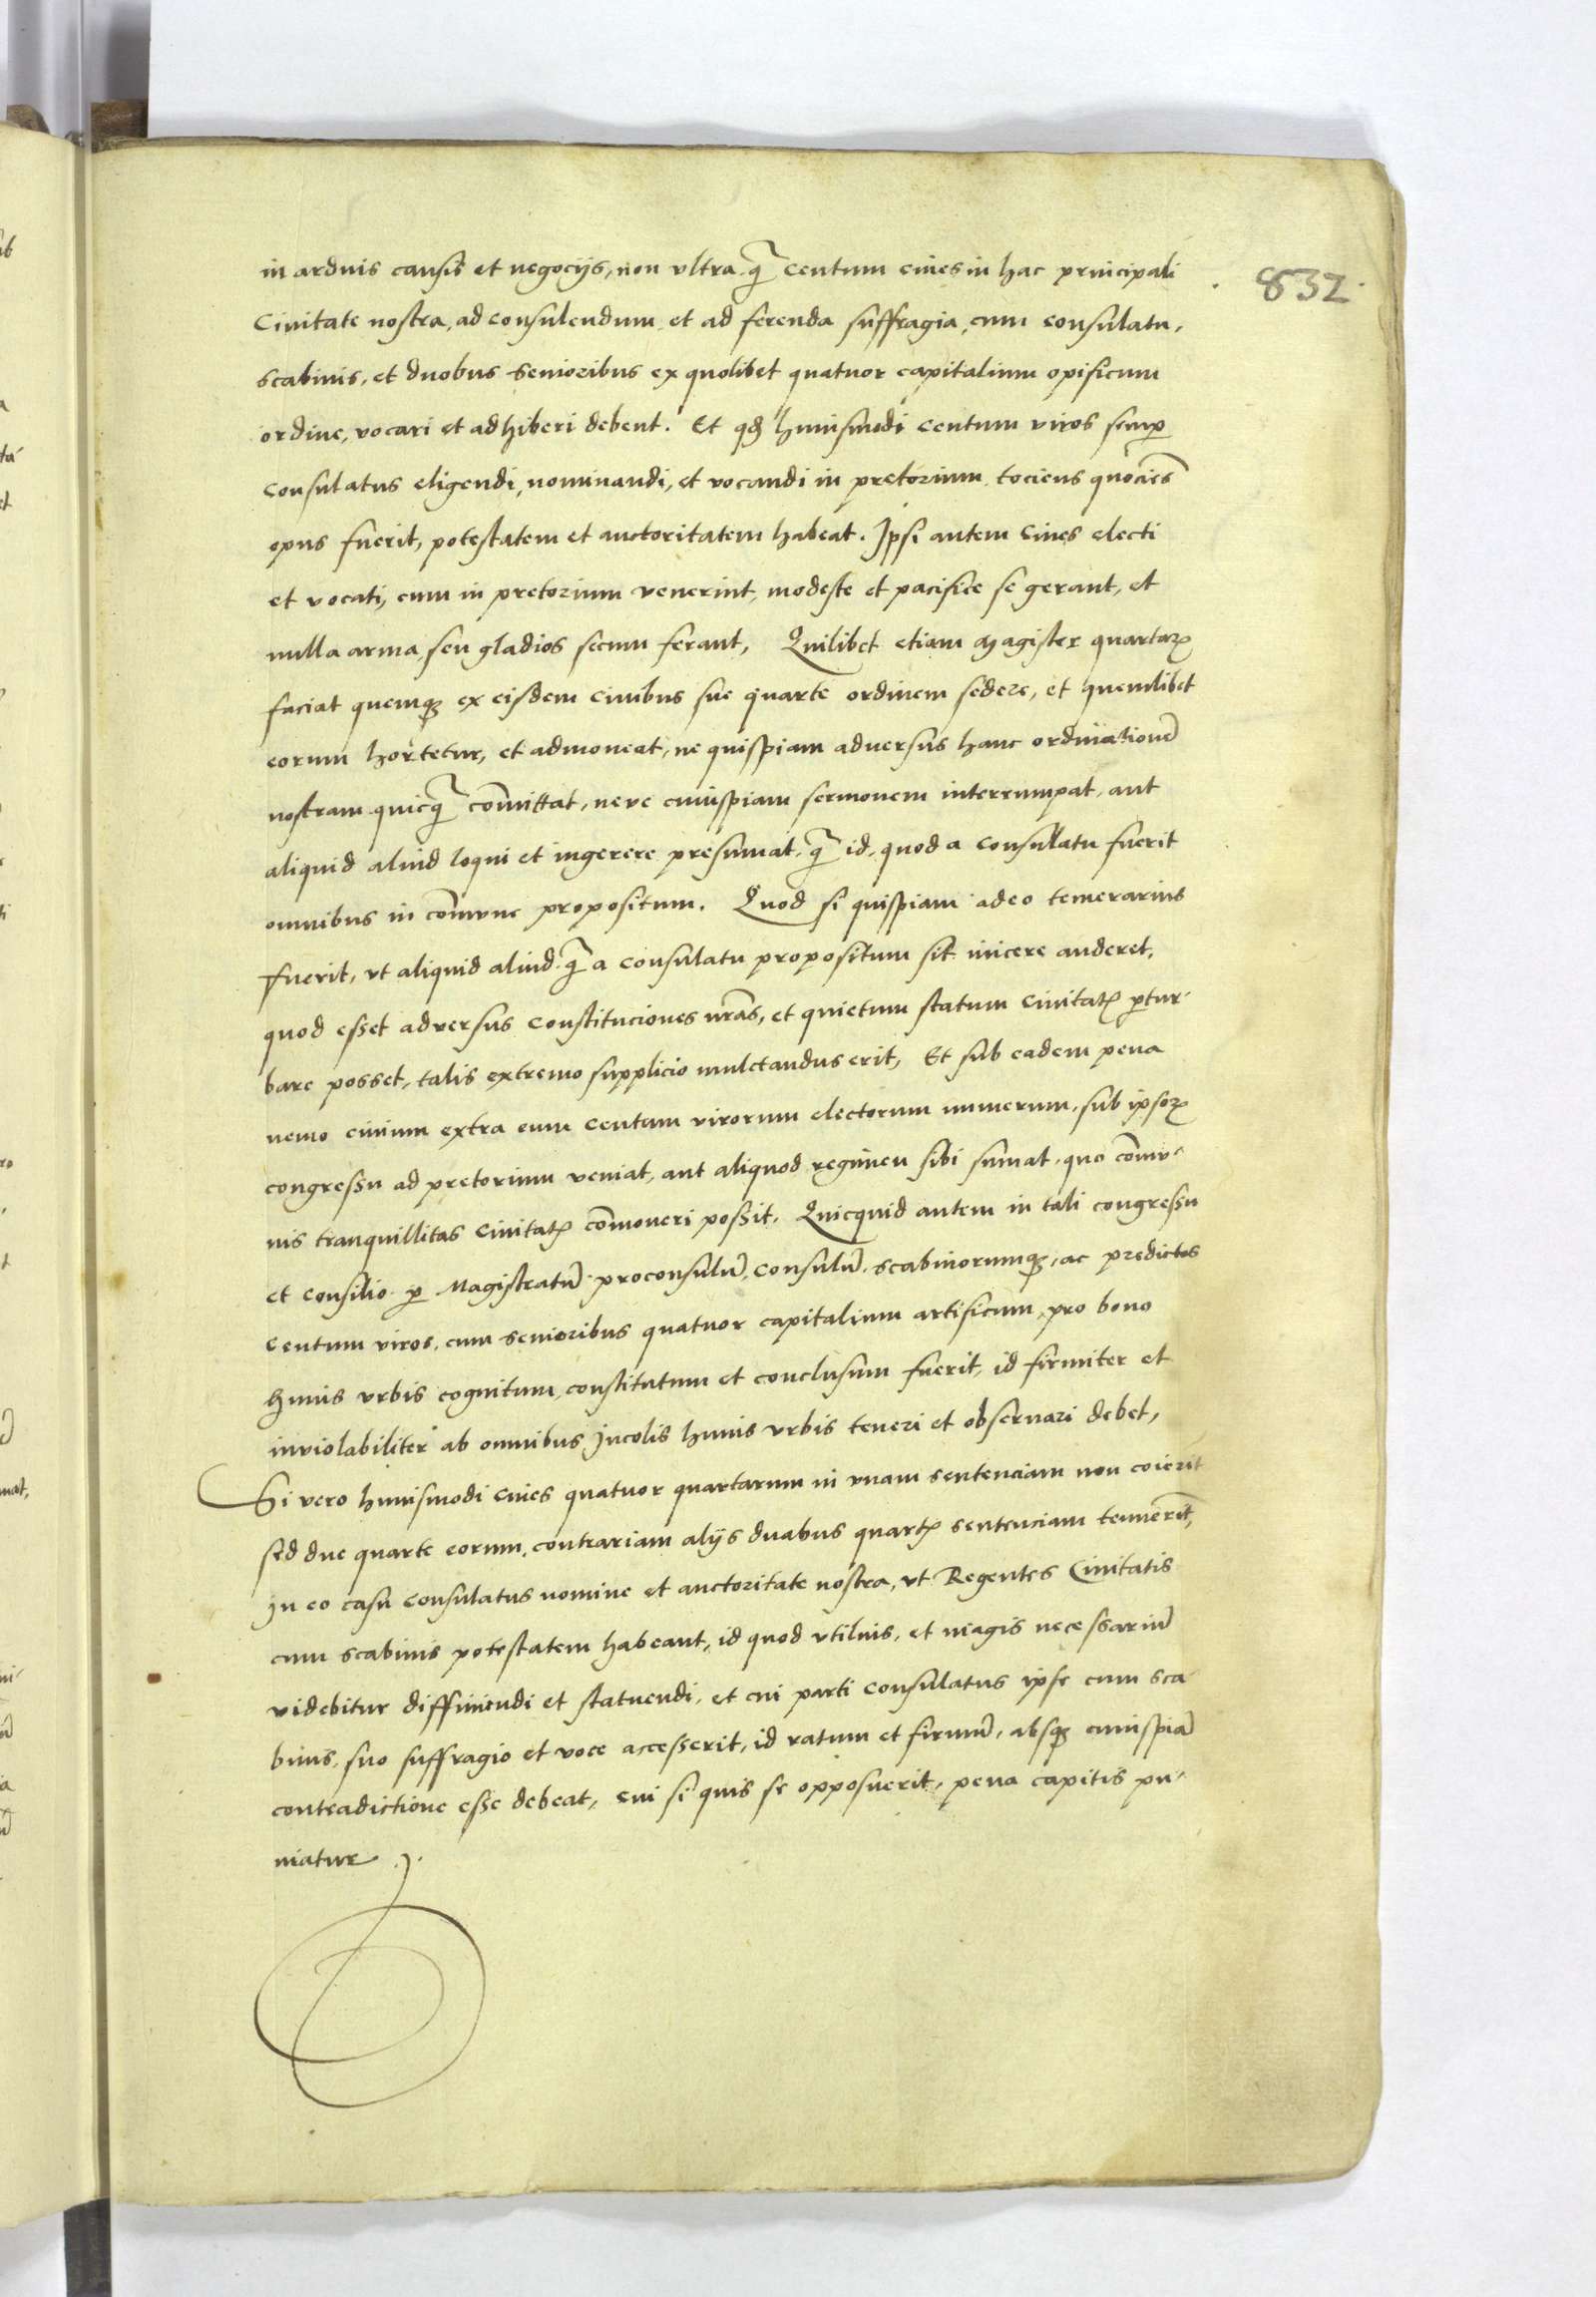 in arduis causis et negocijs, non vltra q̃ centum ciues in hac principali
Ciuitate nostra, ad consulendum et ad ferenda suffragia, cum consulatu,
scabinis, et duobus senioribus ex quolibet quatuor capitalium opificum
ordine, vocari et adhiberi debent. Et qđ huiusmodi centum viros semꝑ
consulatus eligendi, nominandi, et vocandi in pretorium tociens quocies̃
opus fuerit, potestatem et auctoritatem habeat. Ipsi autem Ciues electi
et vocati, cum in pretorium venerint, modeste et pacifice se gerant, et
nulla arma, seu gladios secum ferant, Quilibet etiam Magister quartaꝝ
faciat quemqꝫ ex eisdem ciuibus sue quarte ordinem sedere, et quemlibet
eorum hortetur, et admoneat, ne quispiam aduersus hanc ordinationẽ
nostram quicq̃ com̃ittat, neve cuiuspiam sermonem interrumpat, aut
aliquid aliud loqui et ingerere presumat, q̃ id, quod a consulatu fuerit
omnibus in com̃une propositum. Quod si quispiam adeo temerarius
fuerit, vt aliquid aliud q̃ a consulatu propositum sit inicere auderet,
quod esset adversus constituciones nrãs, et quietum statum Ciuitatꝭ ꝑtur-
bare posset, talis extremo supplicio mulctandus erit, Et sub eadem pena
nemo ciuium extra eum centum virorum electorum numerum, sub ipsoꝝ
congressu ad pretorium veniat, aut aliquod regimen sibi sumat, quo com̃u-
nis tranquillitas Ciuitatꝭ com̃oueri possit. Quicquid autem in tali congressu
et consilio ꝑ Magistratũ proconsulũ, consulũ, scabinorumqꝫ, ac predictos
centum viros, cum senioribus quatuor capitalium artificum, pro bono
huius vrbis cognitum, constitutum et conclusum fuerit, id firmiter et
inviolabiliter ab omnibus Incolis huius vrbis teneri et obseruari debet,
Si vero huiusmodi ciues quatuor quartarum in vnam sentenciam non coierint
sed due quarte eorum, contrariam alijs duabus quartꝭ sentenciam tenuerĩt,
In eo casu consulatus nomine et auctoritate nostra, vt Regentes Ciuitatis
cum scabinis potestatem habeant, id quod vtilius, et magis necessariũ
videbitur diffiniendi et statuendi, et cui parti consulatus ipse cum sca
binis, suo suffragio et voce accesserit, id ratum et firmũ, absqꝫ cuiuspiã
contradictione esse debeat, cui si quis se opposuerit, pena capitis pu-
niatur.
832